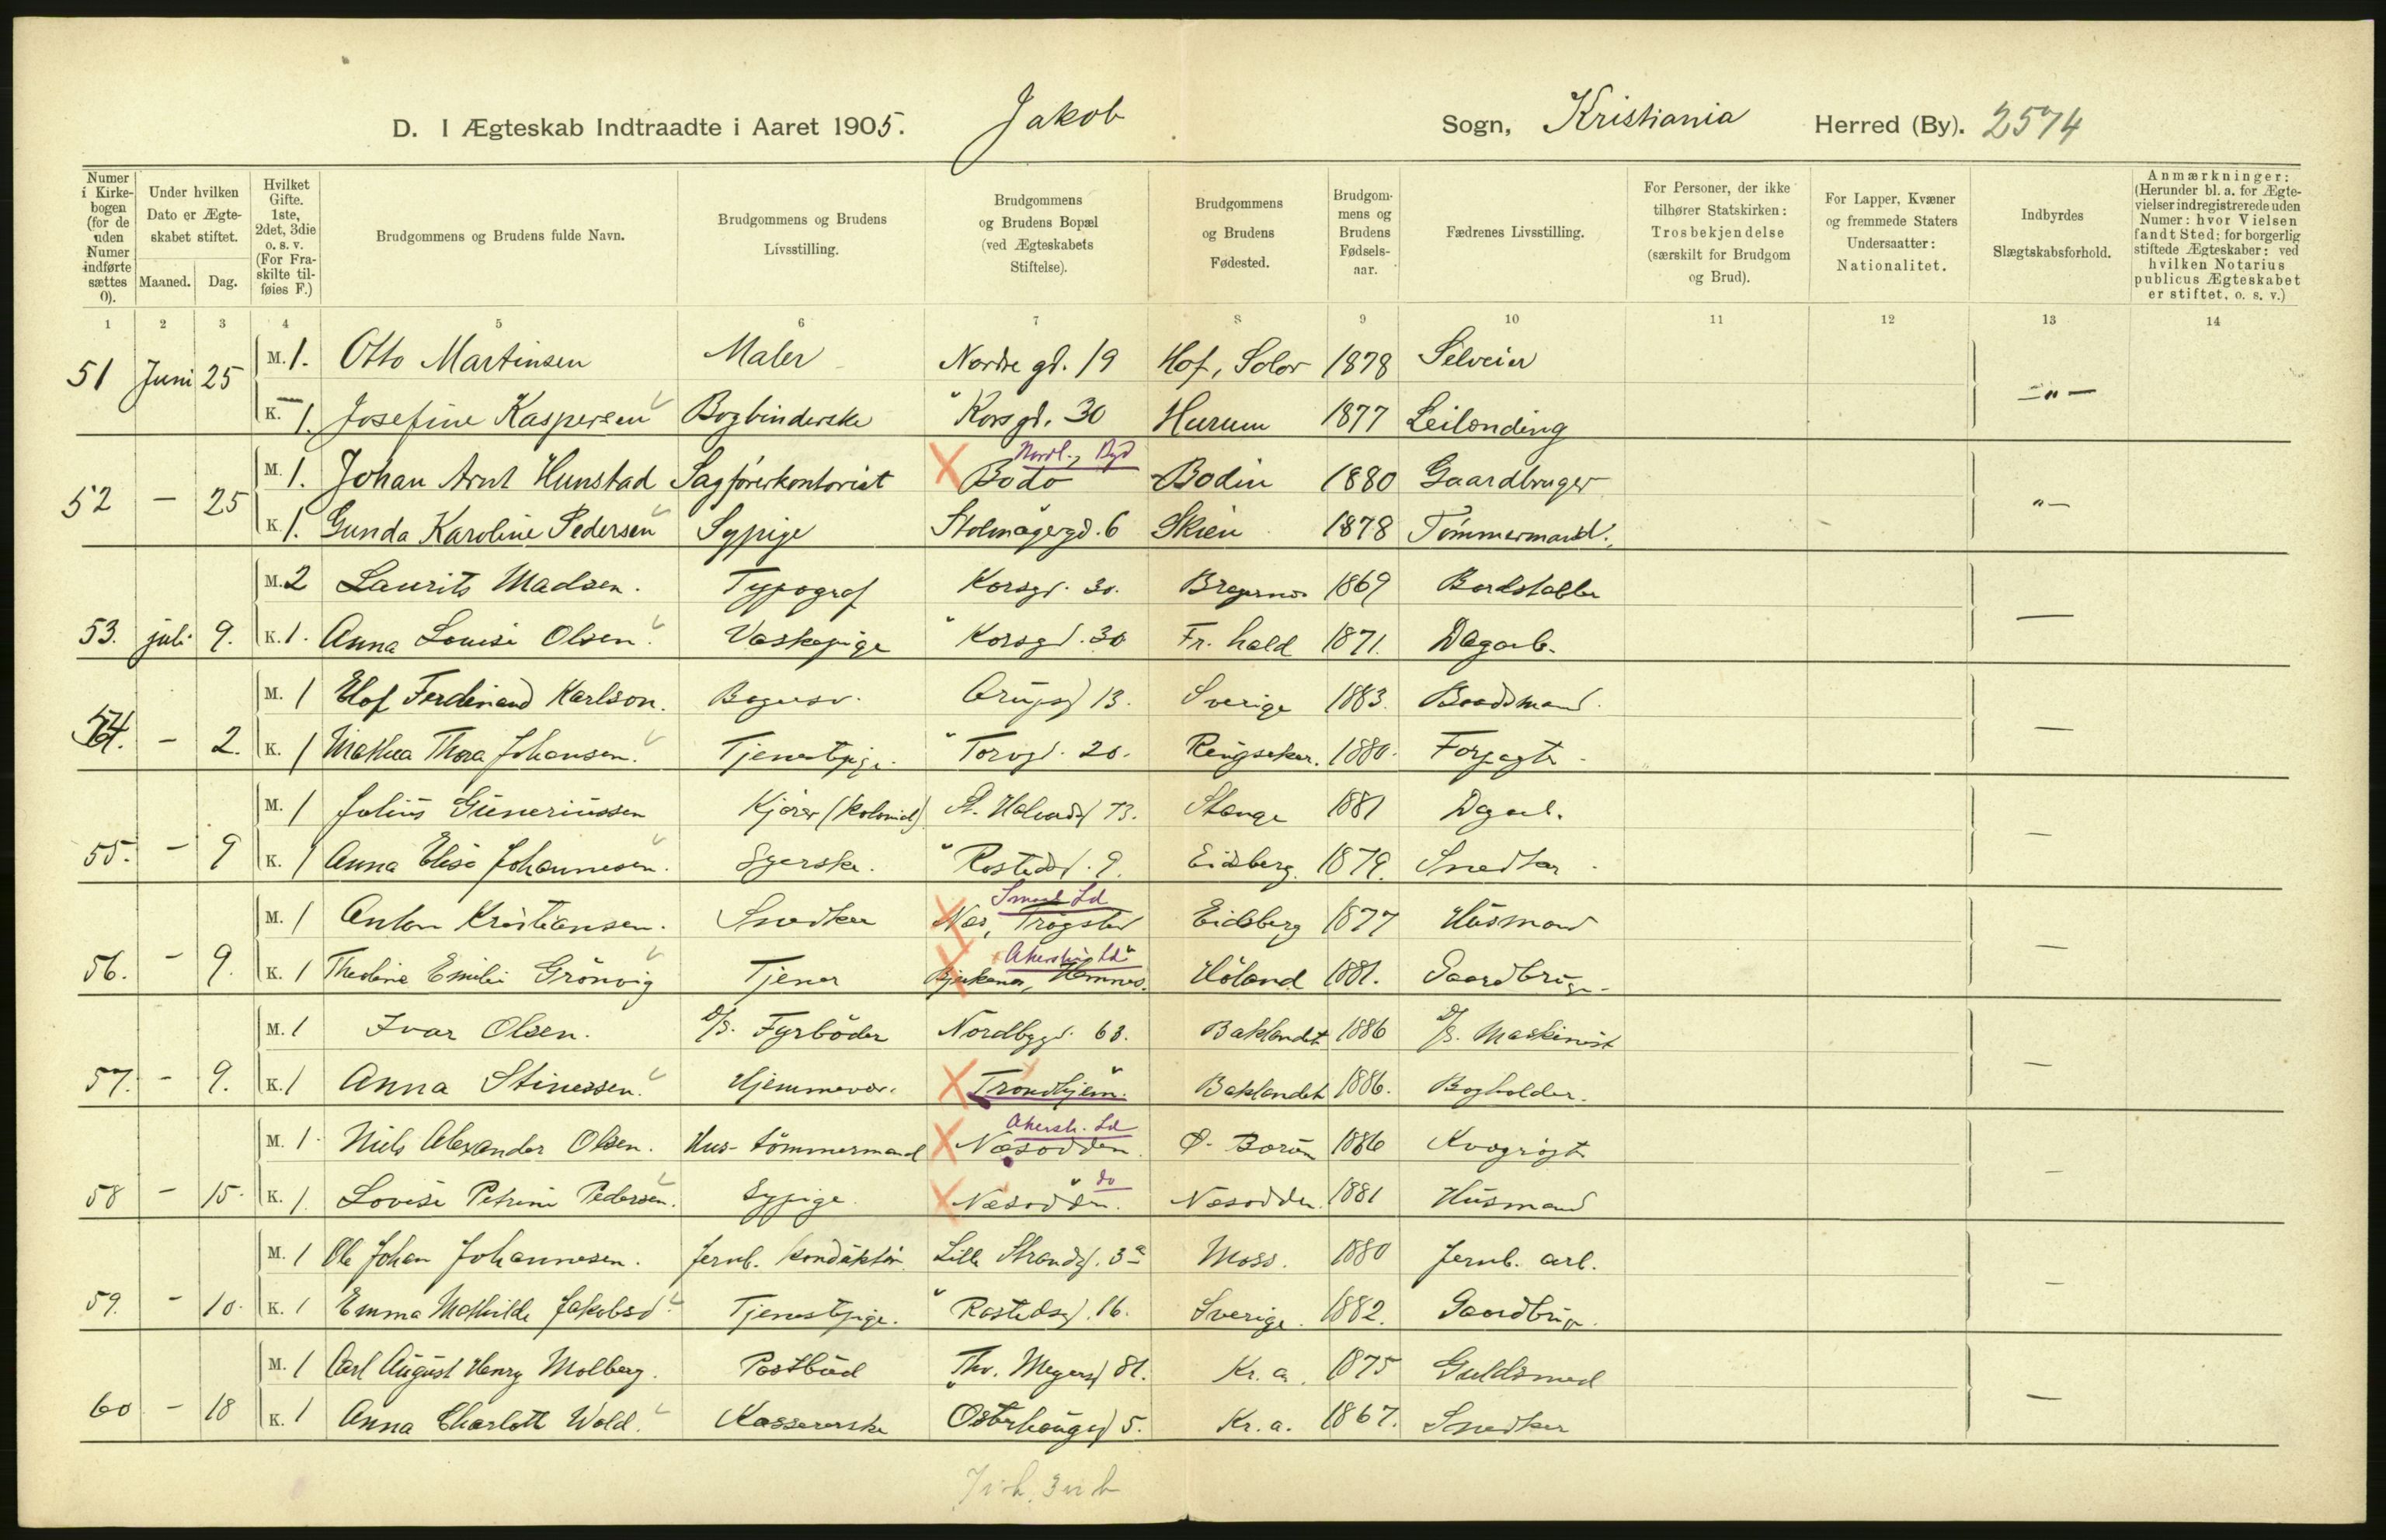 D. I Ægteskab Indtraadte i Aaret 1905. Jakob Sogn, Kristiania Herred (By). 2574
Numer i Kirkebogen (for de uden Numer indførte sættes 0).
Under hvilken Dato er Ægteskabet stiftet.
Maaned. Dag.
Hvilket Gifte. 1ste, 2det, 3die o. s. v. (For Fraskilte tilføies F.)
Brudgommens og Brudens fulde Navn.
Brudgommens og Brudens Livsstilling.
Brudgommens og Brudens Bopæl (ved Ægteskabets Stiftelse).
Brudgommens og Brudens Fødested.
Brudgommens og Brudens Fødselsaar.
Fædrenes Livsstilling.
For Personer, der ikke tilhører Statskirken: Trosbekjendelse (særskilt for Brudgom og Brud).
For Lapper, Kvæner og fremmede Staters Undersaatter: Nationalitet.
Indbyrdes Slægtskabsforhold.
Anmærkninger: (Herunder bl. a. for Ægtevielser indregistrerede uden Numer: hvor Vielsen fandt Sted; for borgerlig stiftede Ægteskaber: ved hvilken Notarius publicus Ægteskabet er stiftet, o. s. v.)
1 2 3 4 5 6 7 8 9 10 11 12 13 14
51 Juni 25 M. 1. Otto Martinsen Maler Nordre gd. 19 Hof, Solør 1878 Selveier
K. 1. Josefine Kaspersen Bogbinderske " Korsgd. 30 Hurum 1877 Leilænding — " —
Nordl., Byd
52 — 25 M. 1. Johan Arnt Hunstad Sagførerkontorist Bodø Bodin 1880 Gaardbruger
K. 1. Gunda Karoline Pedersen Sypige Stolmagergd. 6 Skien 1878 Tømmermand. " —
M. 2 Laurits Madsen. Typograf Korsgd. 30. Bragernes 1869 Bordstabler
53. juli 9. K. 1. Anna Louise Olsen. Vaskepige " Korsgd. 30 Fr. hald 1871. Dagarb. —
M. 1 Elof Ferdinand Karlson. Bagersv. Arupsgd 13. Sverige 1883. Baadsmand.
54. — 2. K. 1 Mathea Thora Johansen. Tjenestpige. " Torvgd. 20. Ringsaker. 1880. Forpagter. —
M. 1 Julius Guneriussen Kjører (kolonial) St. Halvardsgd 73. Stange 1881 Dagarb.
55. — 9 K. 1 Anna Elise Johannesen. Syerske. " Rostedsgd. 9. Eidsberg. 1879. Snedker. —
Smaal. Ld
M. 1 Anton Kristiansen. Snedker Næs, Trøgstad Eidsberg 1877 Husmand
Akershus Ld
56. — 9. K. 1 Theoline Emilie Grönvig Tjener Hemnes. Høland 1881. Gaardbruger. —
M. 1 Ivar Olsen. D/S. Fyrbøder Nordbygd. 63. Baklandet 1886 D/S. Maskinist
57. — 9. K. 1 Anna Stinessen. Hjemmevær. " Trondhjem. Baklandet 1886. Bogholder. —
Akersh. Ld
M. 1. Niels Alexander Olsen. Hus-tømmermand Næsodden. 1886 Kvægrøgter
do
58 — 15. K. 1. Lovise Petrine Pedersen. Sypige. " Næsodden. Næsodden. 1881 Husmand —
M. 1 Ole Johan Johannesen. Jernb. konduktør. Lille Strandgd. 3a Moss. 1880 Jernb. arb.
59. — 10. K. 1 Emma Mathilde Jakobsd. Tjenestpige. " Rostedsgd. 16. Sverige. 1882. Gaardbrug. —
M. 1 Carl August Henry Molberg. Postbud Thv. Meyersgd 81. Kr. a. 1875 Guldsmed
60 — 18 K. 1 Anna Charlotte Wold. Kassererske " Osterhausgd 5. Kr. a. 1867. Snedker —